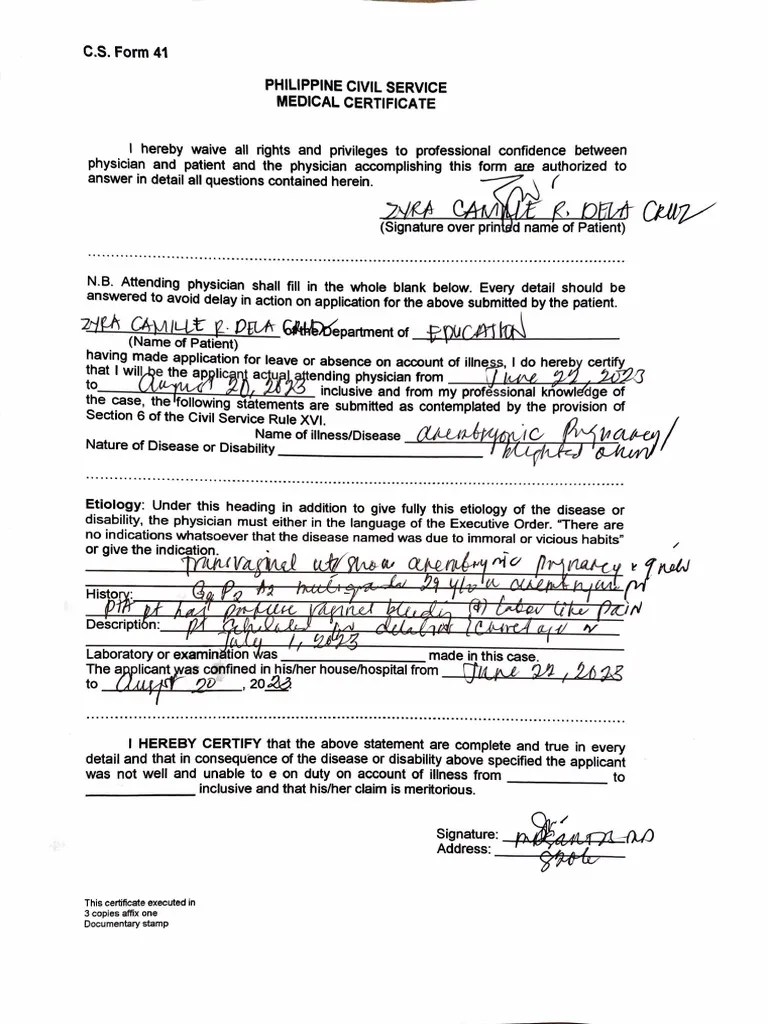 C.S. Form 41
PHILIPPINE CIVIL SERVICE
MEDICAL CERTIFICATE
I hereby waive all rights and privileges to professional confidence between
physician and patient and the physician accomplishing this form are authorized to
answer in detail all questions contained herein.
ZYRA CAMILLE R. DELA CRUZ
(Signature over printed name of Patient)
N.B. Attending physician shall fill in the whole blank below. Every detail should be
answered to avoid delay in action on application for the above submitted by the patient.
ZYRA CAMILLE R. DELA CRUZ of the Department of EDUCATION
(Name of Patient)
having made application for leave or absence on account of illness, I do hereby certify
that I will be the applicant actual attending physician from June 22, 2023
to August 20, 2023 inclusive and from my professional knowledge of
the case, the following statements are submitted as contemplated by the provision of
Section 6 of the Civil Service Rule XVI.
Name of illness/Disease anembryonic Pregnancy/
Nature of Disease or Disability blighted ovum
Etiology: Under this heading in addition to give fully this etiology of the disease or
disability, the physician must either in the language of the Executive Order. "There are
no indications whatsoever that the disease named was due to immoral or vicious habits"
or give the indication.
Transvaginal show anembryonic pregnancy
History: P2 A2 multigravida 29 y/o
PTA pt has profuse vaginal labor like pain
Description: pt
July 1, 2023
Laboratory or examination was made in this case.
The applicant was confined in his/her house/hospital from June 22, 2023
to August 20, 2023.
I HEREBY CERTIFY that the above statement are complete and true in every
detail and that in consequence of the disease or disability above specified the applicant
was not well and unable to e on duty on account of illness from to
inclusive and that his/her claim is meritorious.
Signature:
Address:
This certificate executed in
3 copies affix one
Documentary stamp